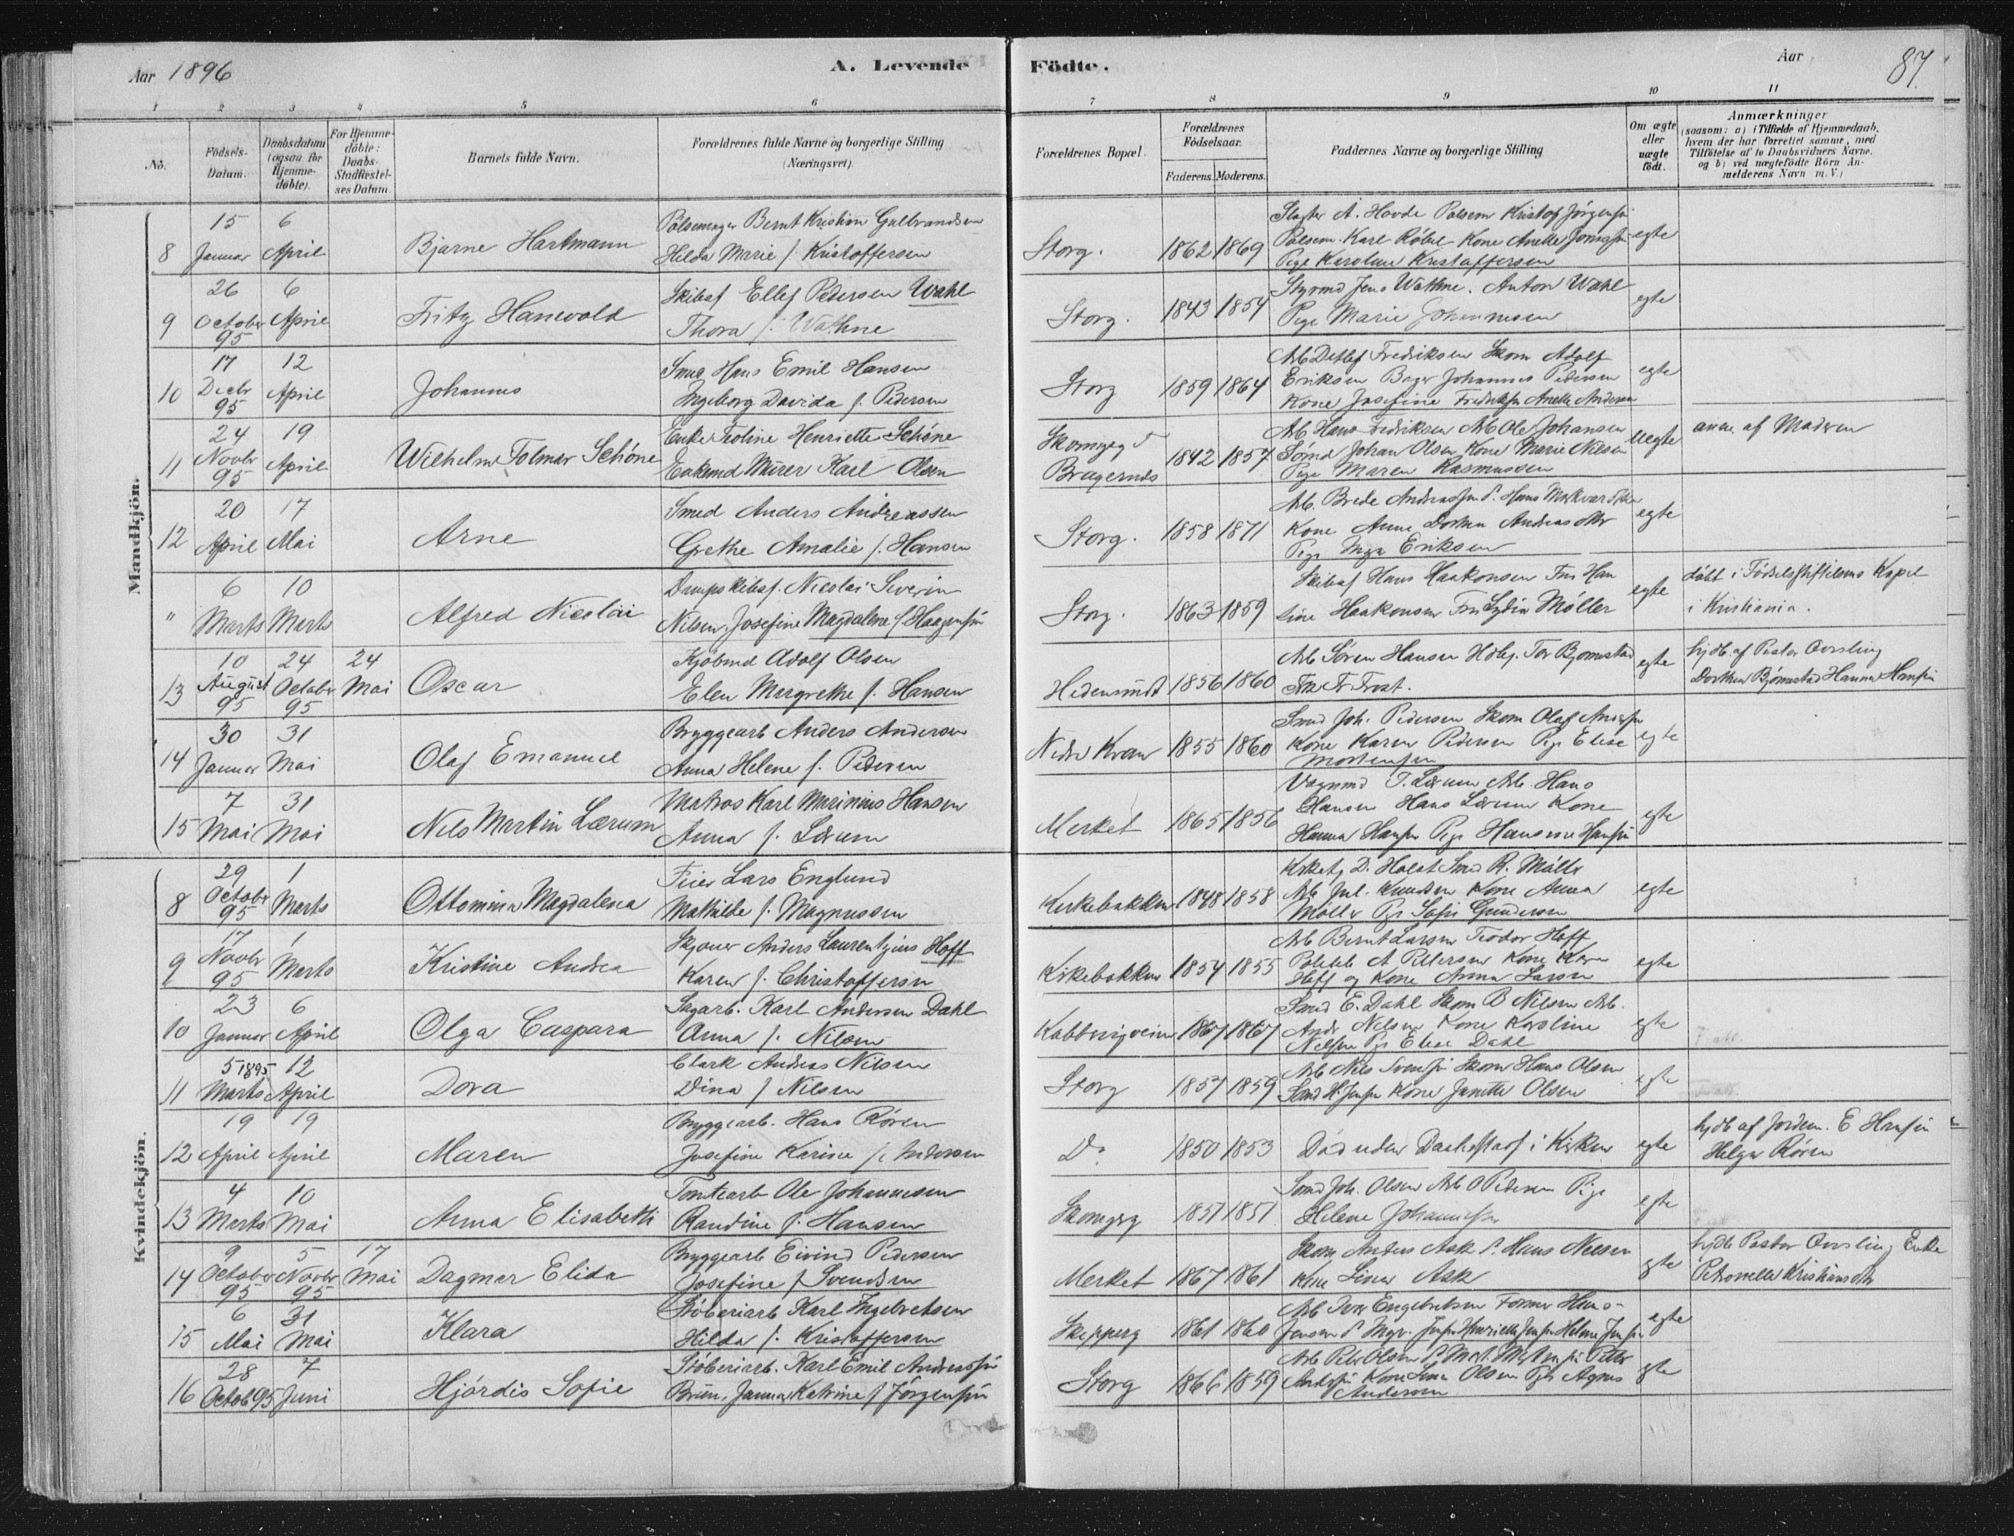 Aar 1896
A. Levende
Födte.
Aar
87.
1 2 3 4 5 6 7 8 9 10 11
No.
Födsels-
Datum.
Daabsdatum
(ogsaa for
Hjemme-
døbte).
For Hjemme-
døbte:
Daabs-
Stadfæstel-
ses Datum.
Barnets fulde Navn.
Forældrenes fulde Navne og borgerlige Stilling
(Næringsvei)
Forældrenes Bopæl.
Forældrenes
Fødselsaar.
Faderens. Moderens.
Faddernes Navne og borgerlige Stilling
Om ægte
eller
uægte
født.
Anmærkninger
(saasom: a) i Tilfælde af Hjemmedaab,
hvem der har forrettet samme, med
Tilføielse af to Daabsvidners Navne.
og b) ved uægtefödte Börn An-
melderens Navn m. V.)
Mandkjön.
8 15 Januar 6 April Bjarne Hartmann
Pølsemager Bernt Kristian Gulbrandsen
Hilda Marie f. Kristoffersen
Storg. 1862 1869
Slagter A. Hovde Pølsem Kristof Jørgensen
Pølsem. Karl Kone Anette
Pige Karoline Kristoffersen
egte
9 26 October 95 6 April Fritz Hanwold
Skibsf Ellef Pedersen Wahl
Thora f. Wathne
Storg. 1843 1854
Styrmd Jens Wathne. Anton Wahl
Pige Marie Johannesen
egte
10 17 Decbr 95 12 April Johannes
Smed Hans Emil Hansen
Ingeborg Davida f. Pedersen
Storg 1859 1864
Arb Detlef Fredriksen Skom Adolf
Eriksen Bager Johannes Pedersen
Kone Josefine Fredriksen Anette Andersen
egte
11 24 Novbr 95 19 April Wilhelm Tolmar Schöne
Enke Henriette Schöne
Enkemd Murer Karl Olsen
Bragernes 1842 1857
Arb Hans Fredriksen Arb Ole Johansen
Sømd Johan Olsen Kone Marie Nilsen
Pige Maren Rasmussen
uegte
anm. af Moderen
12 20 April 17 Mai Arne
Smed Anders Andreassen
Grethe Amalie f. Hansen
Storg. 1858 1871
Arb. Brede Andreassen Hans
Kone Anne Dorthea
Pige Inga Eriksen
egte
" 6 Marts 10 Marts Alfred Nicolai
Dampskibsf. Nicolai Severin
Nilsen, Josefine Magdalene f. Haagensen
Storg. 1863 1859
Skibsf Hans Haakonsen Fru Han
sine Haakonsen Fru Lydia Møller
egte
døbt i Fødselsstiftelsens Kapel
i Kristiania.
13 10 August 95 24 October 95 24 Mai Oscar
Kjøbmd Adolf Olsen
Elen Margrethe f. Hansen
Hedensund 1856 1860
Arb Søren Hansen Tor Bjørnstad
Frost.
egte
hjdb af Pastor
Dorthea Bjørnstad Hanna Hansen
14 30 Januar 31 Mai Olaf Emanuel
Bryggearb Anders Andersen
Anna Helene f. Pedersen
Nedre Kvær 1855 1860
Smd Joh. Pedersen Skom Olaf
Kone Karen Pedersen Pige Elise
Mortensen
egte
15 7 Mai 31 Mai Nils Martin Lærum
Matros Karl Marinius Hansen
Anna f. Lærum
Merket 1865 1856
Vognmd T. Lærum Arb. Hans
Hansen Hans Lærum Kone
Hanna Hansen Pige Hansine Hansen
egte
Kvindekjön.
8 29 October 95 1 Marts Ottomina Magdalena
Feier Lars Englund
Mathilde f. Magnussen
Kirkebakken 1848 1858
D. Holst Smd R. Møller
Arb Jul. Knudsen Kone Anna
Møller Pige Sofie Gundersen
egte
9 17 Novbr 95 1 Marts Kristine Andrea
Skjøner Anders Laurentzius Hoff
Karen f. Christoffersen
Kirkebakken 1854 1855
Arb Bernt Larsen Teodor Hoff
Politib A Pettersen Kone Karen
Hoff og Kone Anna Larsen
egte
10 23 Januar 6 April Olga Caspara
Sagarb. Karl Andersen Dahl
Anna f. Nilsen
1867 1867
Smd E. Dahl Skom B Nilsen Arb.
Andr Nilsen Kone Karoline
Nilsen Pige Elise Dahl
egte
11 5 Marts 1895 12 April Dora
Clark Andreas Nilsen
Dina f Nilsen
Storg 1857 1859
Arb Nils Svensen Skom Hans Olsen
Smd H. Jensen Kone Janette Olsen
egte
12 19 April 19 April Maren
Bryggearb. Hans Røren
Josefine Karine f. Andersen
Do 1850 1853
Død uden Daabsstadf i Kirken
egte
hjdb af Jordem. E Hansen
Helga Røren
13 4 Marts 10 Mai Anna Elisabeth
Tomtearb Ole Johannesen
Randine f. Hansen
Skomgrg 1851 1851
Smd Joh. Olsen Arb O Pedersen Pige
Helene Johannesen
egte
14 9 October 95 5 Novbr 95 17 Mai Dagmar Elida
Bryggearb Eivind Pedersen
Josefine f Svendsen
Merket 1867 1861
Skom Anders Ask Hans Nilsen
Kone Lina Ask
egte
hjdb Pastor Enke
Petronella
15 6 Mai 31 Mai Klara
Støberiarb Karl Ingebretsen
Hilda f. Kristoffersen
Skipperg 1861 1860
Arb Iver Engebretsen Former Hans
Jensen Henriette Jensen Helene Jensen
egte
16 28 Octob 95 7 Juni Hjördis Sofie
Støberiarb. Karl Emil Andreassen
Brun, Janna Katrine f Jörgensen
Storg 1866 1859
Arb Peter Olsen Peter
Kone Lina Olsen Pige Agnes
Andersen
egte